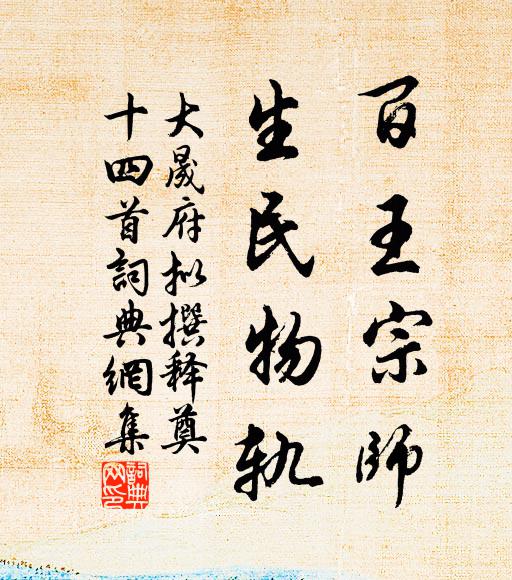 百王宗師
生民物軌
大晟府拟撰释奠
十四首詞典網集
詞典網印